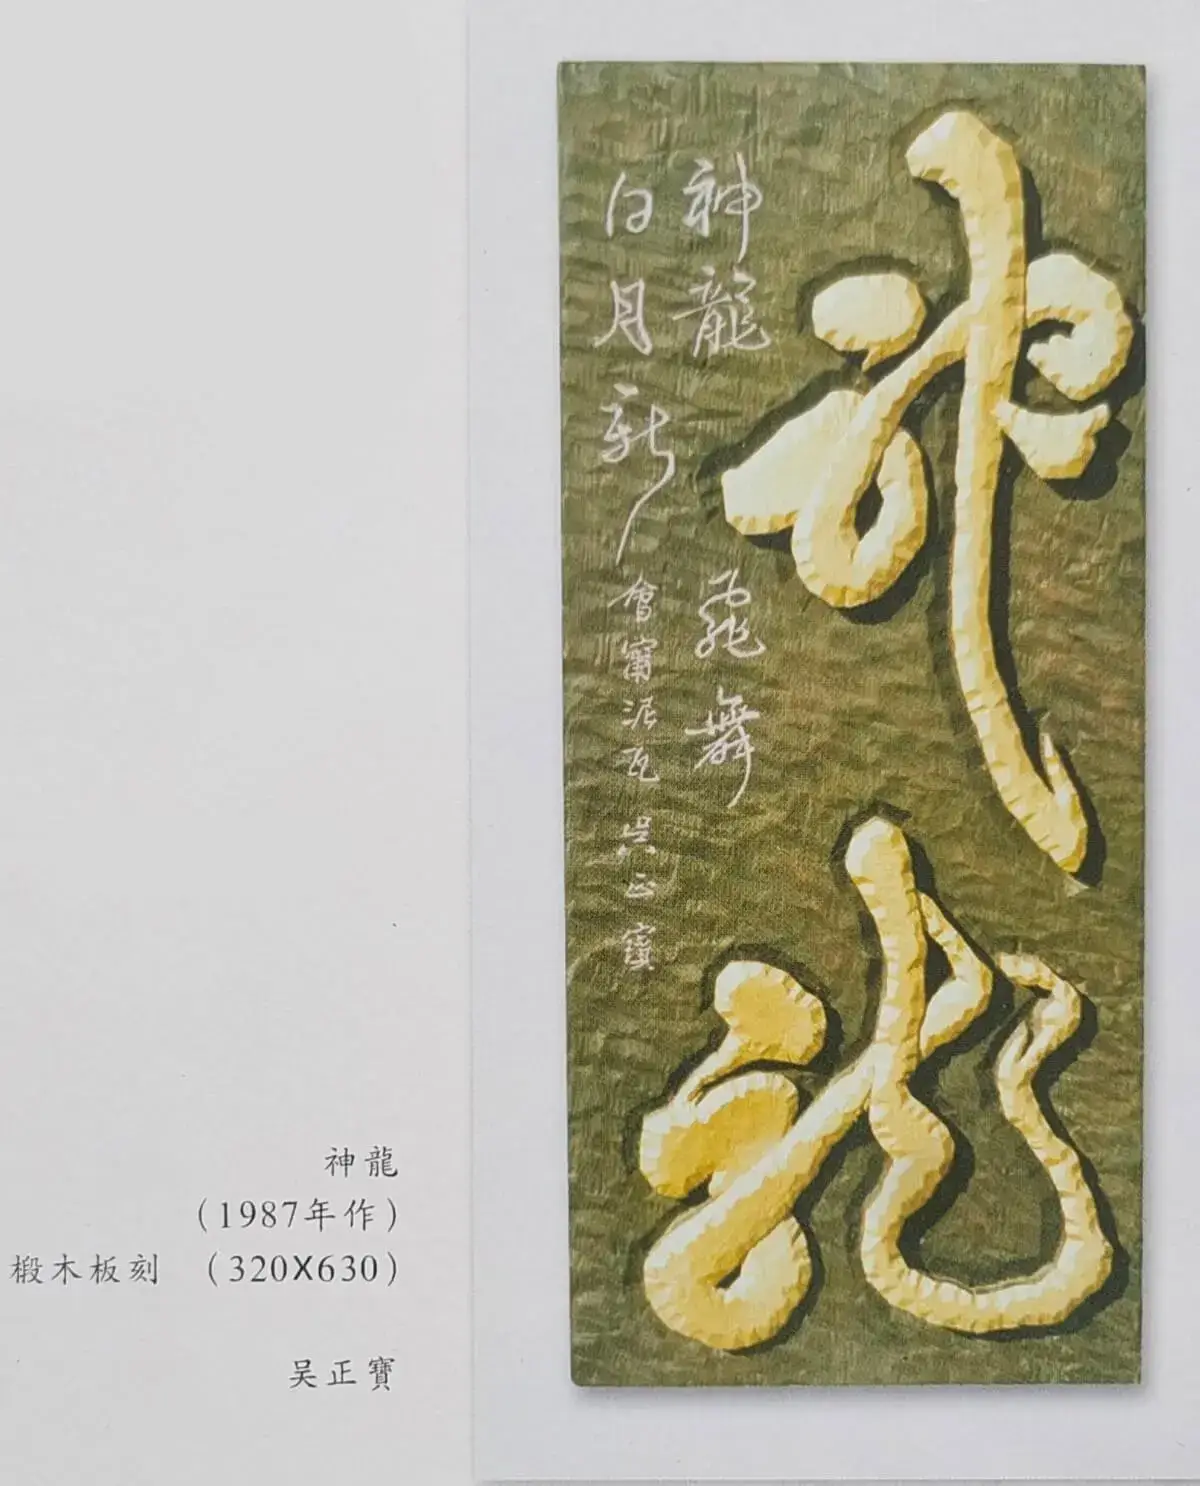 神龍
神龍飛舞
日月新 會甯泥瓦吴正寶
神龍
（1987年作）
椴木板刻 （320X630）
吴正寶